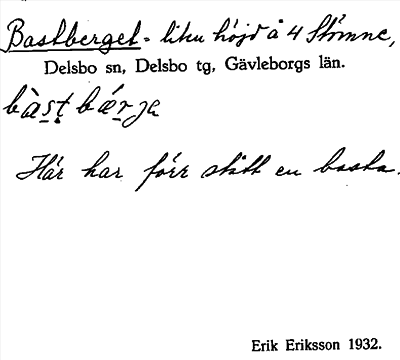 Bastberget - liten höjd å 4 Stömne,
Delsbo sn, Delsbo tg, Gävleborgs län.
bàs̱ṯbæṟja
Här har förr stått en basta.
Erik Eriksson 1932.